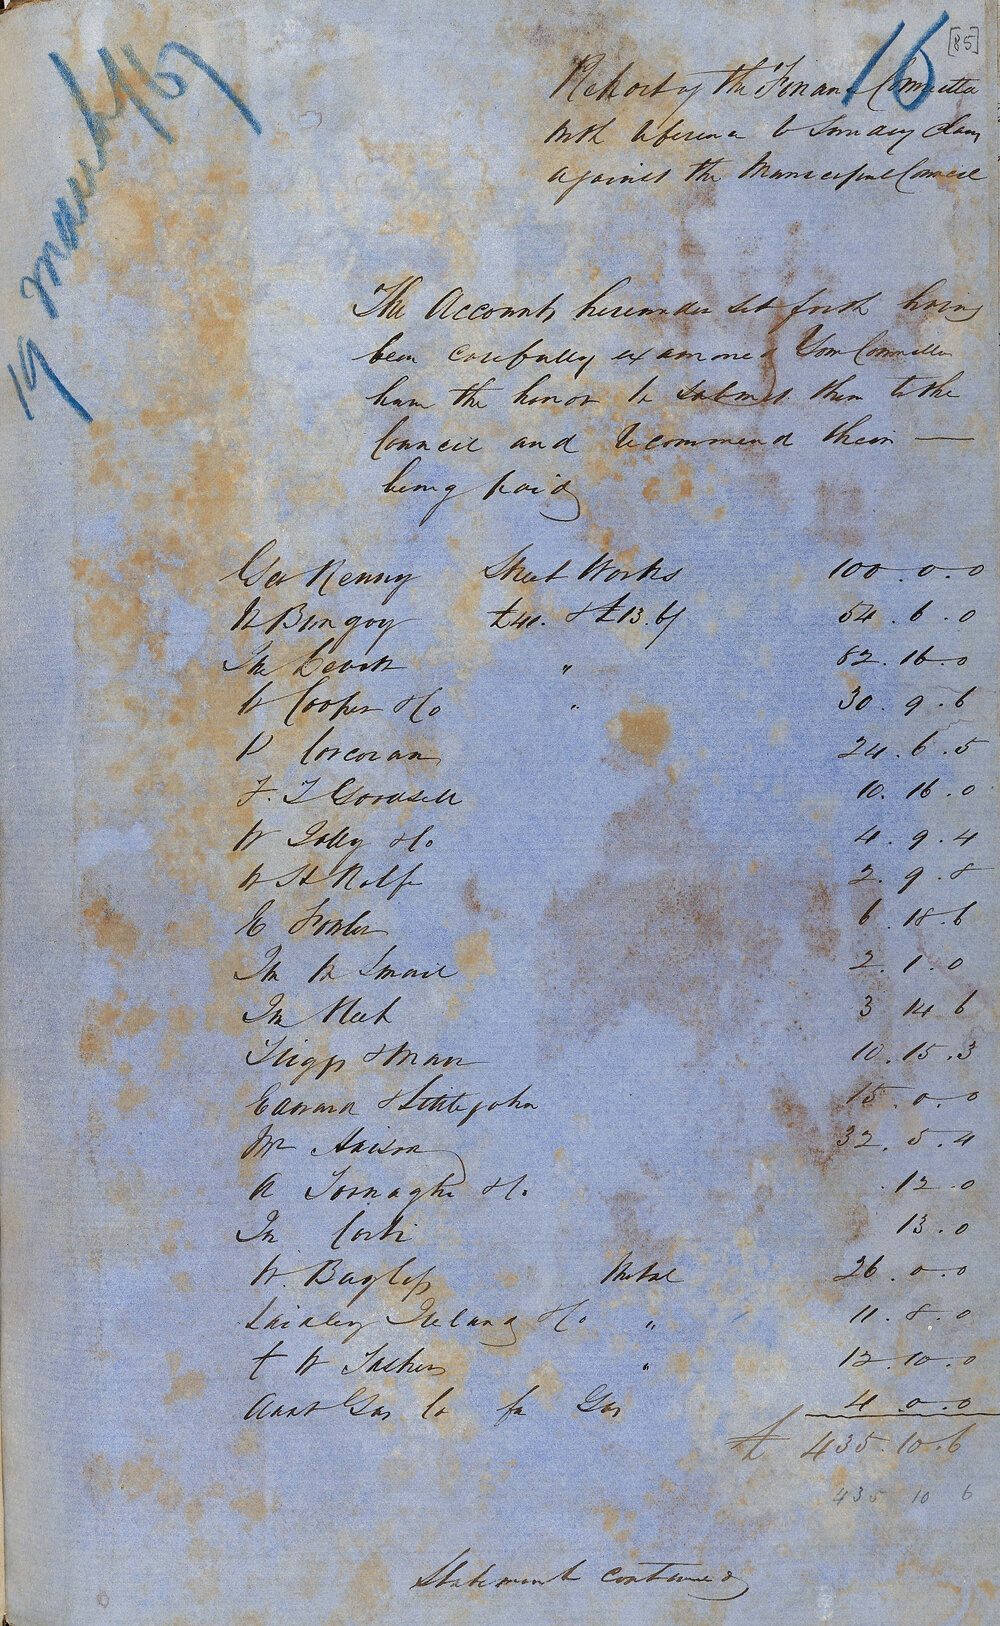 [85]
16
19 March /67
Report of the Finance Committee
with reference to Sundry Claims
against the Municipal Council
The Accounts hereunder set forth having
been carefully examined Your Committee
have the honor to submit them to the
Council and recommend their —
being paid
Geo Kenny Street Works 100 . 0 . 0
£41. & £13.6/ 54 . 6 . 0
Jn " 82 . 16 . 0
W Cooper & Co " 30 . 9 . 6
P Corcoran 24 . 6 . 5
F. T Goodsell 10 . 16 . 0
W Jolly & Co 4 . 9 . 4
W H Rolfe 2 . 9 . 8
E Fowler 6 . 18 . 6
Jn W Smail 2 . 1 . 0
Jn 3 14 6
& Marr 10 . 15 . 3
Edward & Littlejohn 15 . 0 . 0
Mr 32 . 5 . 4
A Tornaghi & Co . 12 . 0
Jn 13 . 0
W. Metal 26 . 0 . 0
Ireland & Co " 11 . 8 . 0
W " 12 . 10 . 0
Aust Gas Co for Gas 4 . 0 . 0
£ 435 . 10 . 6
435 10 6
Statement continued